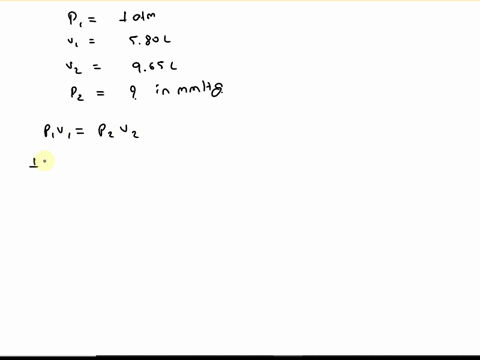 P₁ = 1 atm
V₁ = 5.80 L
V₂ = 9.65 L
P₂ = ? in mmHg
P₁V₁ = P₂ V₂
1